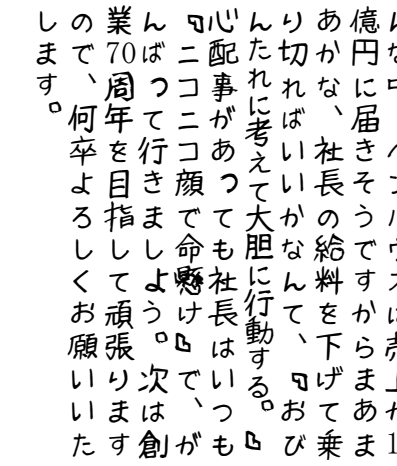 億円に届きそうですからまあま
あかな、社長の給料を下げて乗
り切ればいいかなんて、『おび
んたれに考えて大胆に行動する。』
心配事があっても社長はいつも
『ニコニコ顔で命懸け』で、が
んばって行きましょう。次は創
業70周年を目指して頑張ります
ので、何卒よろしくお願いいた
します。